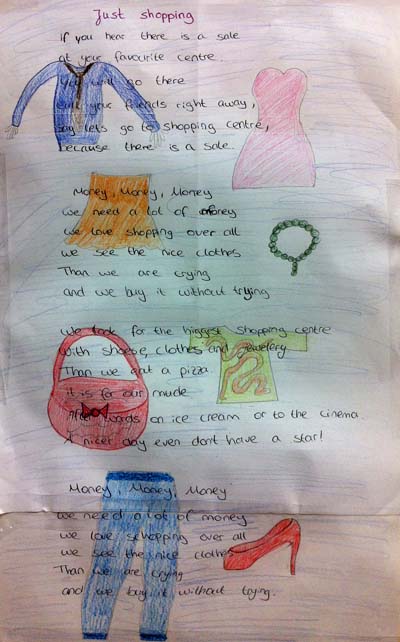 Just shopping
If you hear there is a sale
at your favourite centre.
You will go there
call your friends right away,
say lets go to shopping centre,
because there is a sale.
Money, Money, Money
we need a lot of money
we love shopping over all
we see the nice clothes
Than we are crying
and we buy it without trying
We look for the biggest shopping centre
With shoese, clothes and jewellery
Than we eat a pizza
it is for our mude
After words on ice cream or to the cinema.
A nicer day even dont have a star!
Money, Money, Money
we need a lot of money
we love schopping over all
we see the nice clothes
Than we are crying
and we buy it without trying.